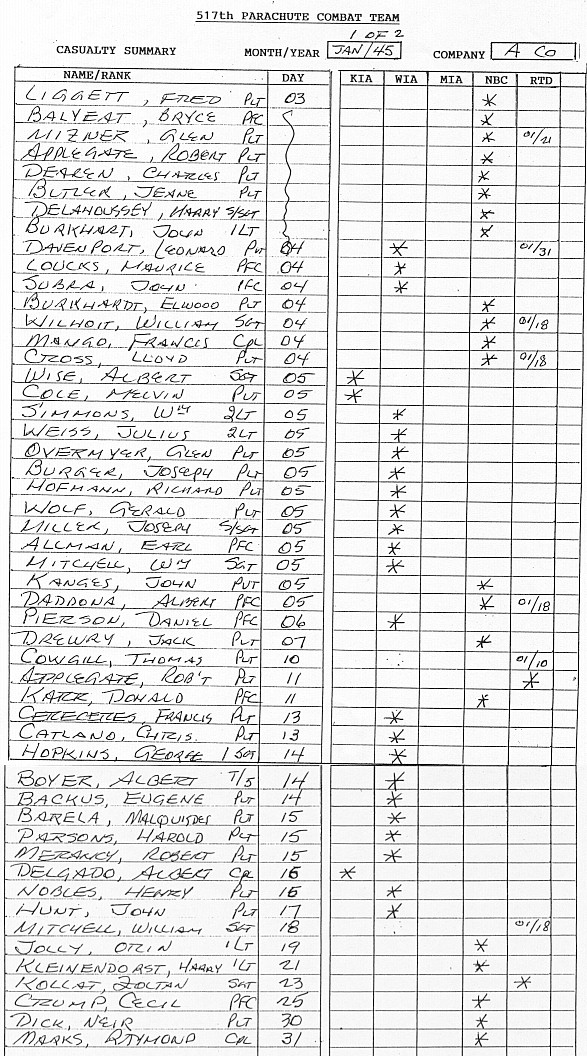 517th PARACHUTE COMBAT TEAM
1 OF 2
CASUALTY SUMMARY MONTH/YEAR JAN/45 COMPANY A Co
NAME/RANK DAY KIA WIA MIA NBC RTD
LIGGETT, FRED PVT 03 *
BALYEAT, BRYCE PFC *
MIZNER, GLEN PVT * 01/21
APPLEGATE, ROBERT PVT *
DEAREN, CHARLES PVT *
BUTLER, JEANE PVT *
DELAHOUSSEY, HARRY S/SGT *
BURKHART, JOHN 1LT *
DAVENPORT, LEONARD PVT 04 * 01/31
LOUCKS, MAURICE PFC 04 *
SUBRA, JOHN PFC 04 *
BURKHARDT, ELWOOD PVT 04 *
WILHOIT, WILLIAM SGT 04 * 01/18
MANGO, FRANCIS CPL 04 *
CROSS, LLOYD PVT 04 * 01/18
WISE, ALBERT SGT 05 *
COLE, MELVIN PVT 05 *
SIMMONS, WM 2LT 05 *
WEISS, JULIUS 2LT 05 *
OVERMYER, GLEN PVT 05 *
BURGER, JOSEPH PVT 05 *
HOFMANN, RICHARD PVT 05 *
WOLF, GERALD PVT 05 *
MILLER, JOSEPH S/SGT 05 *
ALLMAN, EARL PFC 05 *
MITCHELL, WM SGT 05 *
KANGES, JOHN PVT 05 *
DADDONA, ALBERT PFC 05 * 01/18
PIERSON, DANIEL PFC 06 *
DREWRY, JACK PVT 07 *
COWGILL, THOMAS PVT 10 01/10
APPLEGATE, ROB'T PVT 11 *
KARR, DONALD PFC 11 *
CERECERES, FRANCIS PVT 13 *
CATLAND, CHRIS. PVT 13 *
HOPKINS, GEORGE 1SGT 14 *
BOYER, ALBERT T/5 14 *
BACKUS, EUGENE PVT 14 *
BARELA, MALQUISDES PVT 15 *
PARSONS, HAROLD PVT 15 *
MERANCY, ROBERT PVT 15 *
DELGADO, ALBERT CPL 16 *
NOBLES, HENRY PVT 16 *
HUNT, JOHN PVT 17 *
MITCHELL, WILLIAM SGT 18 01/18
JOLLY, ORIN 1LT 19 *
KLEINENDORST, HARRY 1LT 21 *
KOLLAT, ZOLTAN SGT 23 *
CRUMP, CECIL PFC 25 *
DICK, NEIR PVT 30 *
MARKS, RAYMOND CPL 31 *